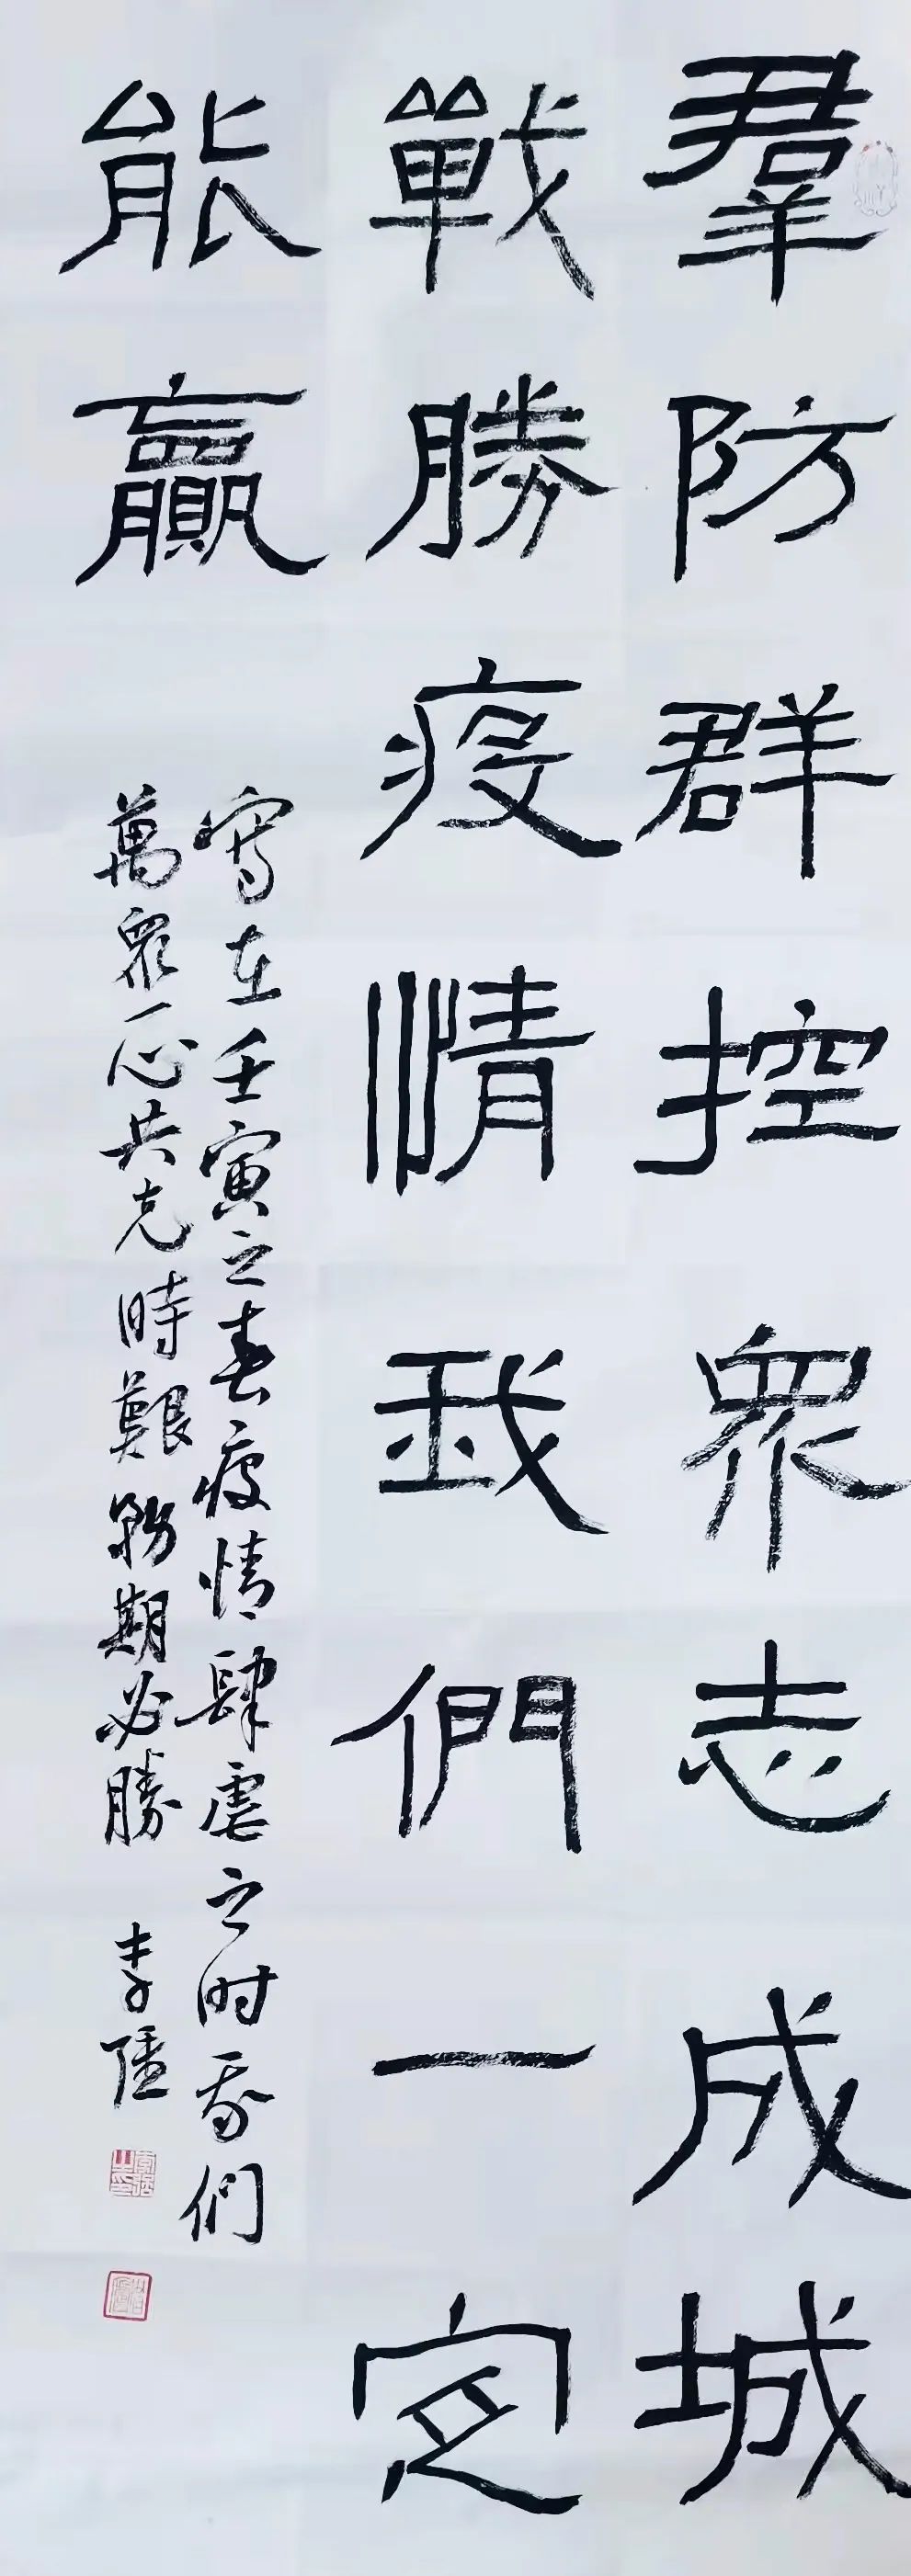 羣防群控眾志成城
戰勝疫情我們一定
能贏
寫在壬寅之春疫情肆虐之时我们
萬眾一心共克時艱勠期必勝
李